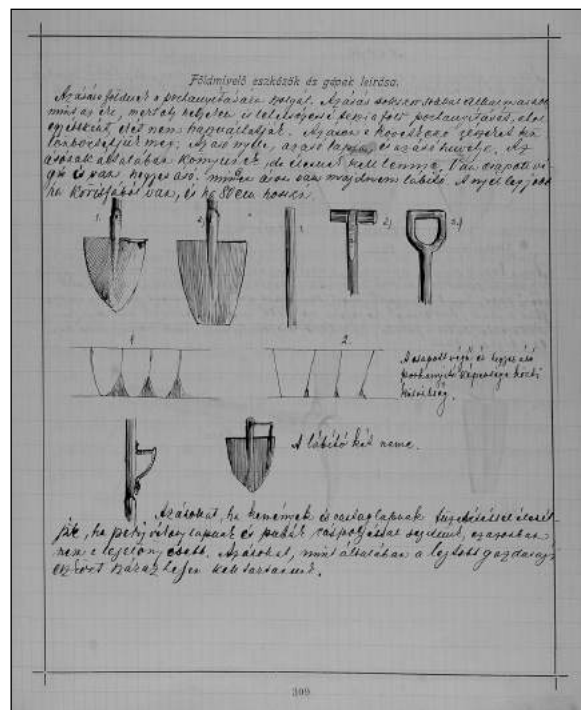 Földmivelő eszközök és gépek leirása.
Az ásás a földnek a porhanyitására szolgál. Az ásás sokkal
mint az eke, mert oly helyeken is lehetséges a föld porhanyitását, ahol
egyébként ezt nem használhatjuk. Az ásón a következő részeket
különböztetjük meg: Az ásó nyele, az ásó lapja, és az ásó hüvelye. Az
ásónak általában könnyünek, de erősnek kell lennie. Van csapott vé-
gű és van hegyes ásó. Minden ásón van majdnem lábitó. A nyél legjobb
ha kőrisfából van, és ha 80 cm hosszú.
1.
2.
1.
2.)
3.)
1.
2.
A csapott végű és hegyes ásó
porhanyitó képessége közti
külömbség.
A lábitó két neme.
Az ásókat, ha kemények és vastag lapuak
jük, ha pedig vékony lapuak és puhák ráspolyással
nem a legelőnyösebb. Az ásókat, mint általában a legtöbb gazdasági
eszközt száraz helyen kell tartanunk.
309